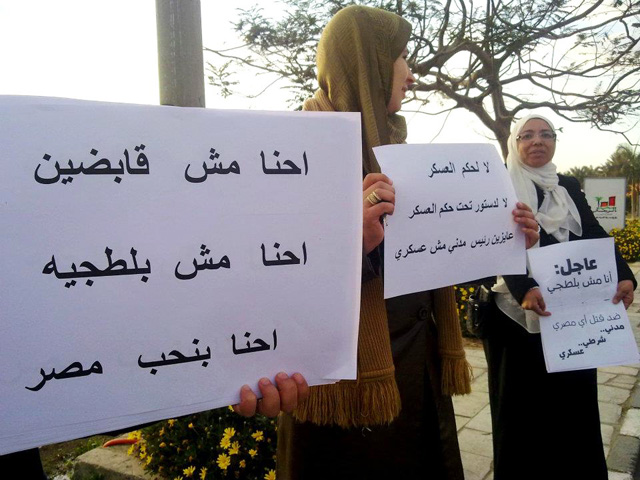 احنا مش قابضين
احنا مش بلطجيه
احنا بنحب مصر
لا لحكم العسكر
لا لدستور تحت حكم العسكر
عايزين رئيس مدني مش عسكري
عاجل:
أنا مش بلطجي
ضد قتل أي مصري
مدني..
شرطي..
عسكري